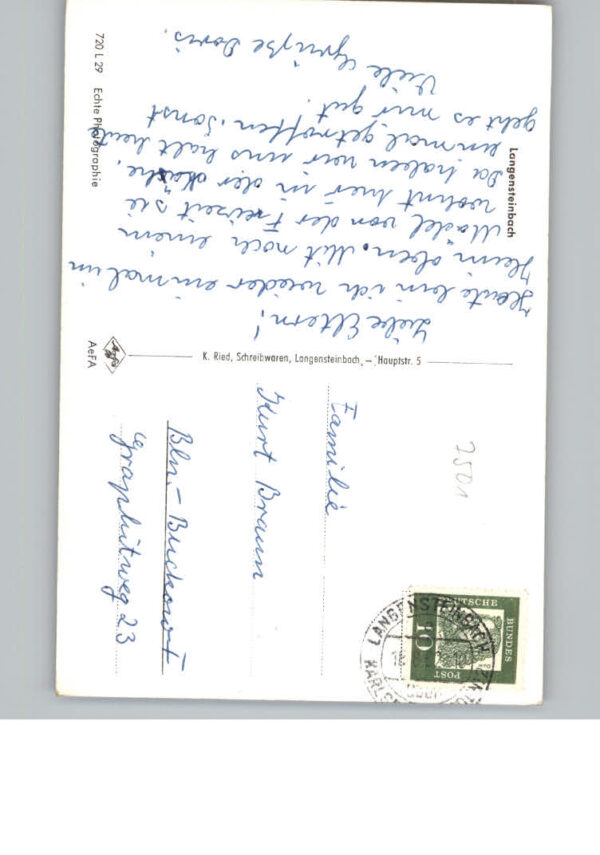 Langensteinbach
Liebe Eltern!
Heute bin ich wieder einmal im
Heim oben. Mit noch einem
Mädel von der Freizeit sie
wohnt hier in der Nähe.
Da haben wir uns halt heute
einmal getroffen. Sonst
geht es mir gut.
Viele Grüße Doris.
720 L 29 Echte Photographie
K. Ried, Schreibwaren, Langensteinbach, – Hauptstr. 5
Agfa
AeFA
Familie
Kurt Braun
Bln.-Buckow
Graphitweg 23
7501
DEUTSCHE
BUNDES
POST
10
LANGENSTEINBACH